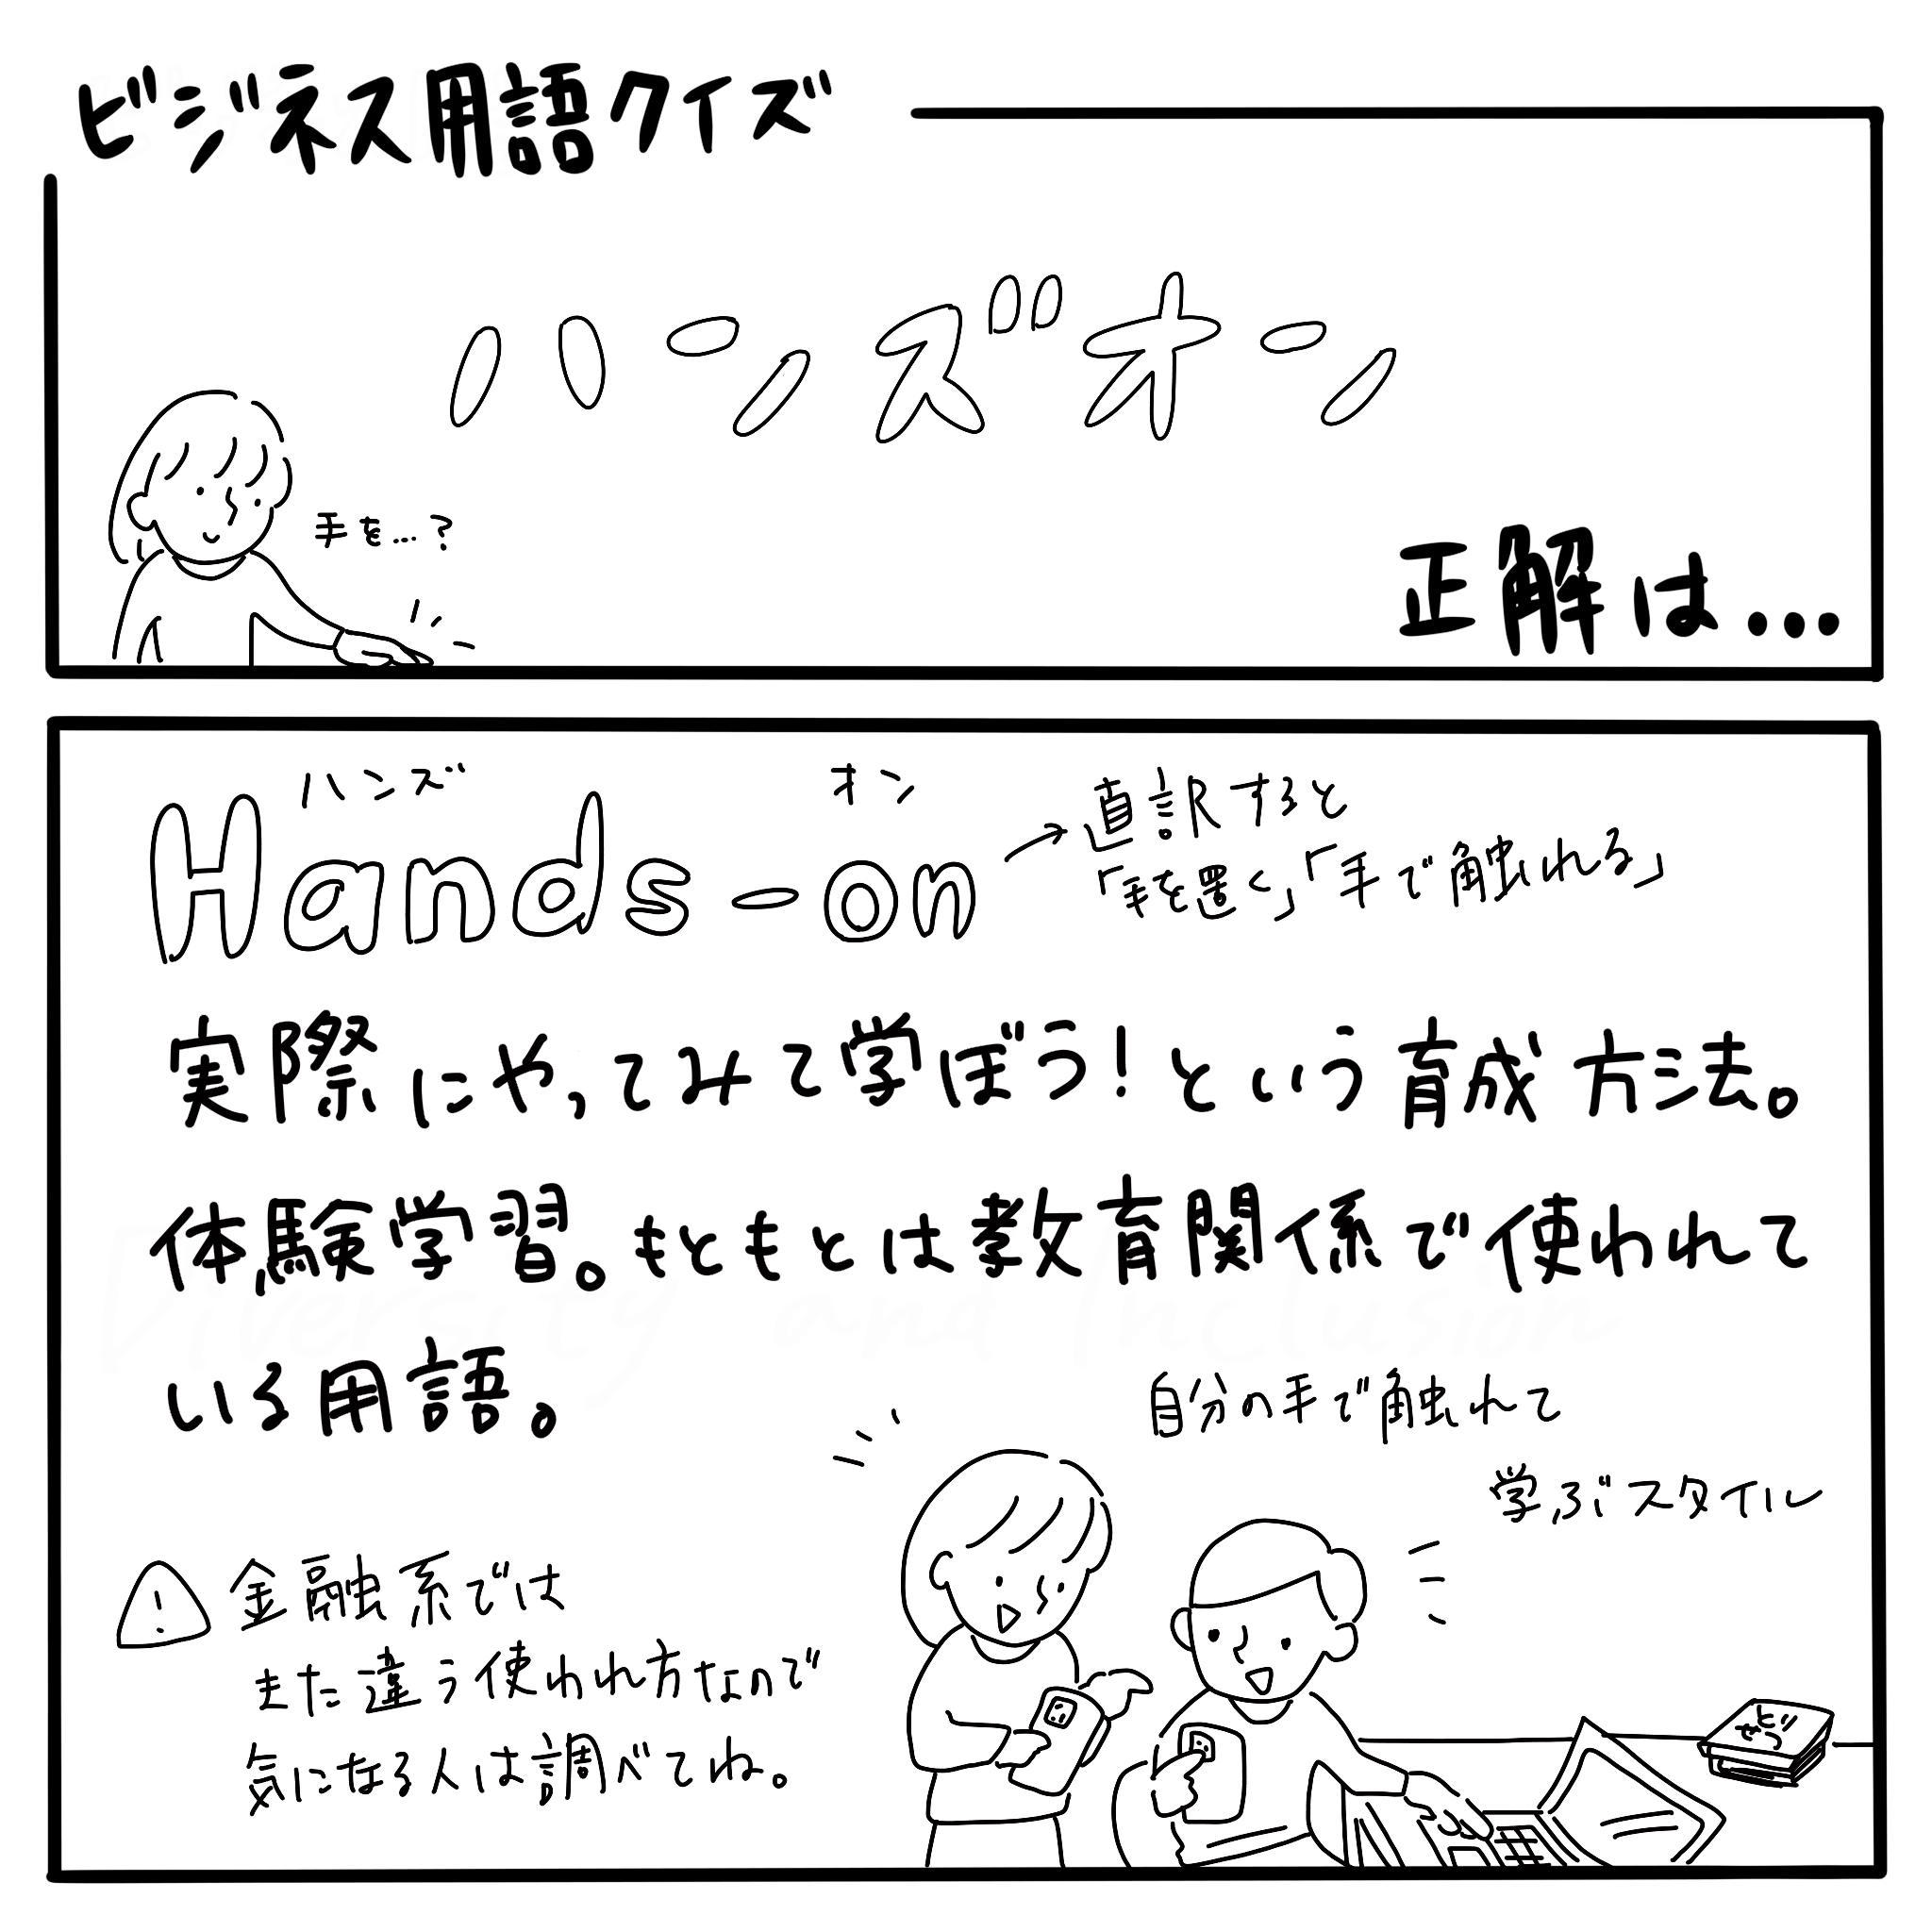 ビジネス用語クイズ
ハンズオン
手を…?
正解は…
ハンズ オン
Hands-on
→直訳すると
「手を置く」「手で触れる」
実際にやってみて学ぼう!という育成方法。
体験学習。もともとは教育関係で使われて
いる用語。
自分の手で触れて
学ぶスタイル
金融系では
また違う使われ方なので
気になる人は調べてね。